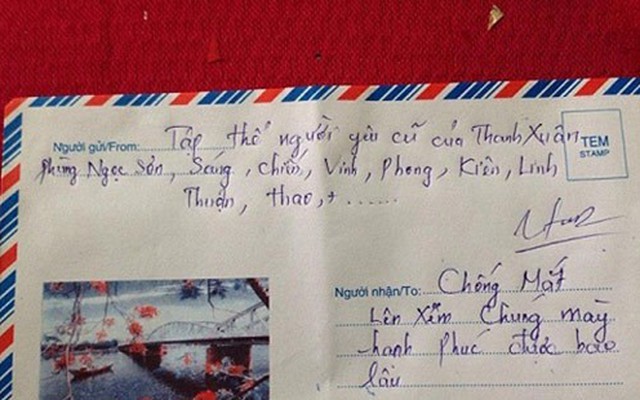 Người gửi/From: Tập thể người yêu cũ của Thanh Xuân
Phùng Ngọc Sơn, Sáng, Chiến, Vinh, Phong, Kiên, Linh
Thuận, thao, + ......
TEM
STAMP
Người nhận/To: Chống Mắt
Lên Xem Chúng mày
hanh phúc được bao
lâu